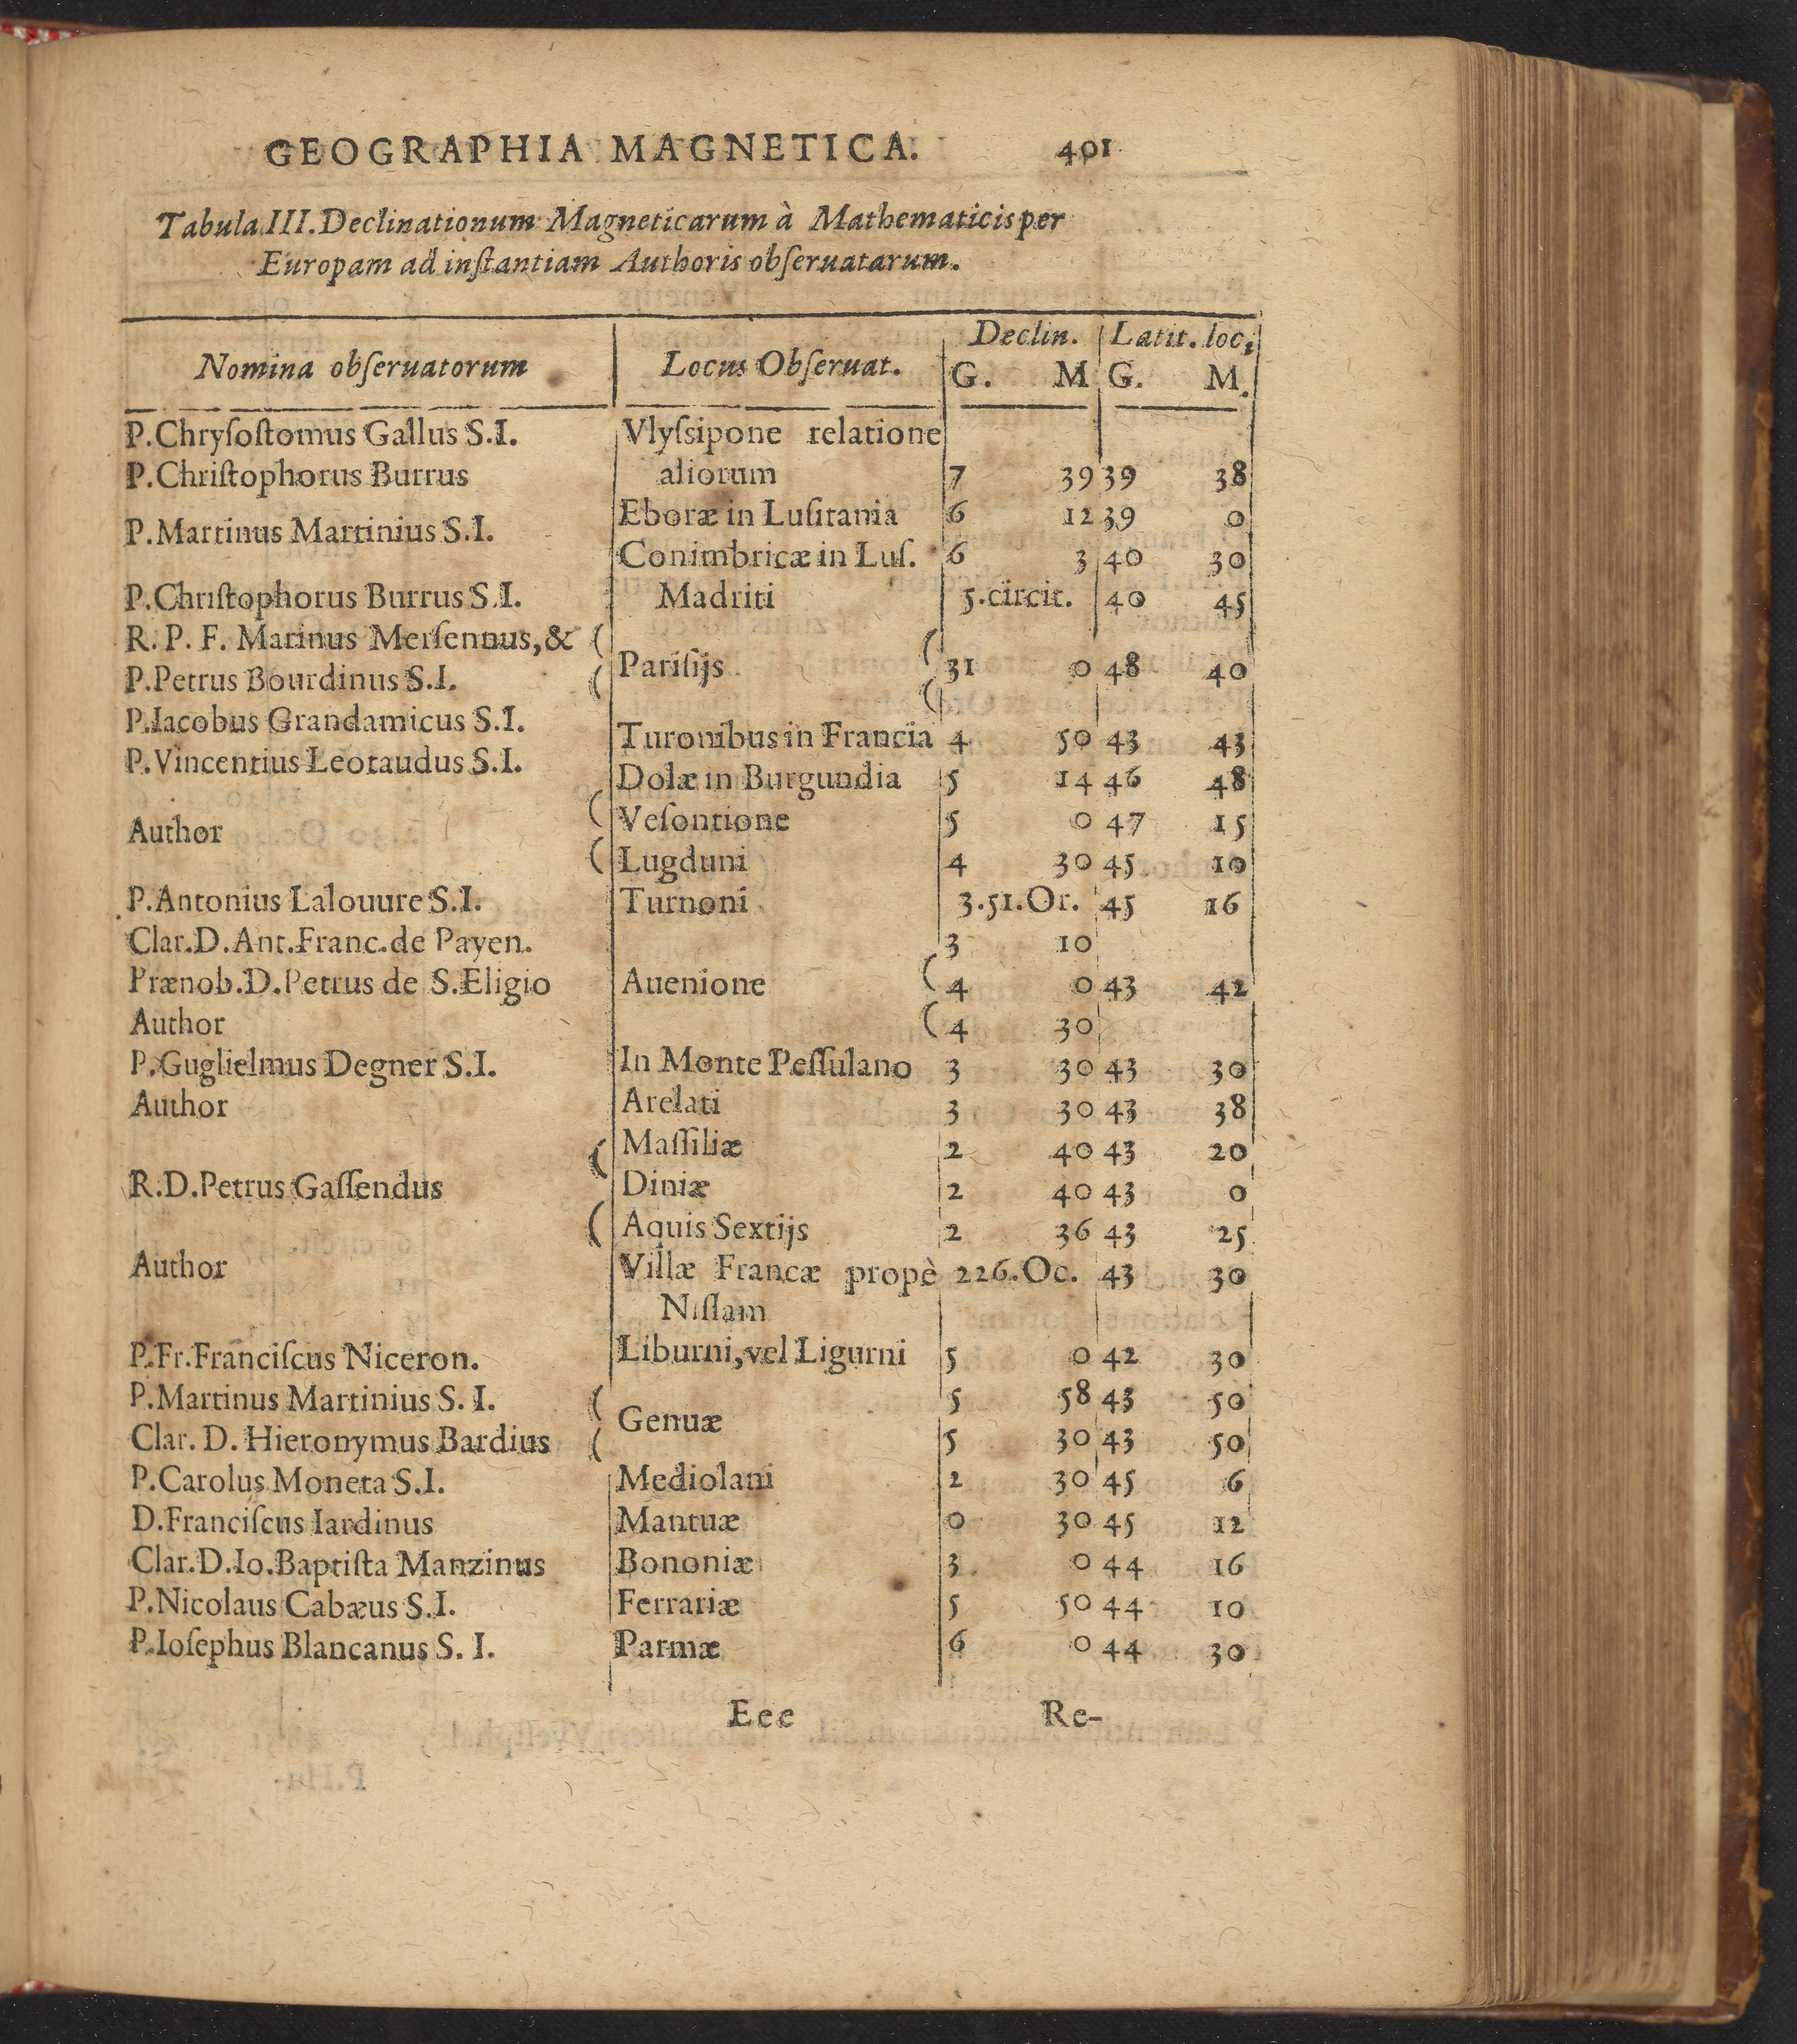 GEOGRAPHIA MAGNETICA. 401
Tabula III. Declinationum Magneticarum à Mathematicis per
Europam ad inſtantiam Authoris obſeruatarum.
Nomina obſeruatorum Locus Obſeruat. Declin. Latit. loc.
G. M G. M.
P.Chryſoſtomus Gallus S.I. Vlyſsipone relatione
P.Chriſtophorus Burrus aliorum 7 39 39 38
Eboræ in Luſitania 6 12 39 0
P.Martinus Martinius S.I.
Conimbricæ in Luſ. 6 3 40 30
P.Chriſtophorus Burrus S.I. Madriti 5.circit. 40 45
R. P. F. Marinus Merſennus, & (
Pariſijs ( 31 0 48 40
P.Petrus Bourdinus S.I. ( (
P.Iacobus Grandamicus S.I.
Turonibus in Francia 4 50 43 43
P.Vincentius Leotaudus S.I.
Dolæ in Burgundia 5 14 46 48
( Veſontione 5 0 47 15
Author
( Lugduni 4 30 45 10
P.Antonius Lalouure S.I. Turnoni 3.51.Or. 45 16
Clar.D.Ant.Franc.de Payen. 3 10
Prænob.D.Petrus de S.Eligio Auenione ( 4 0 43 42
Author ( 4 30
P.Guglielmus Degner S.I. In Monte Peſſulano 3 30 43 30
Author Arelati 3 30 43 38
( Maſſiliæ 2 40 43 20
R.D.Petrus Gaſſendus Diniæ 2 40 43 0
( Aquis Sextijs 2 36 43 25
Author Villæ Francæ propè 226.Oc. 43 30
Niſſam
P.Fr.Franciſcus Niceron. Liburni, vel Ligurni 5 0 42 30
P.Martinus Martinius S. I. ( 5 58 43 50
Genuæ
Clar. D. Hieronymus Bardius ( 5 30 43 50
P.Carolus Moneta S.I. Mediolani 2 30 45 6
D.Franciſcus Iardinus Mantuæ 0 30 45 12
Clar.D.Io.Baptiſta Manzinus Bononiæ 3 0 44 16
P.Nicolaus Cabæus S.I. Ferrariæ 5 50 44 10
P.Ioſephus Blancanus S. I. Parmæ 6 0 44 30
Eee Re-